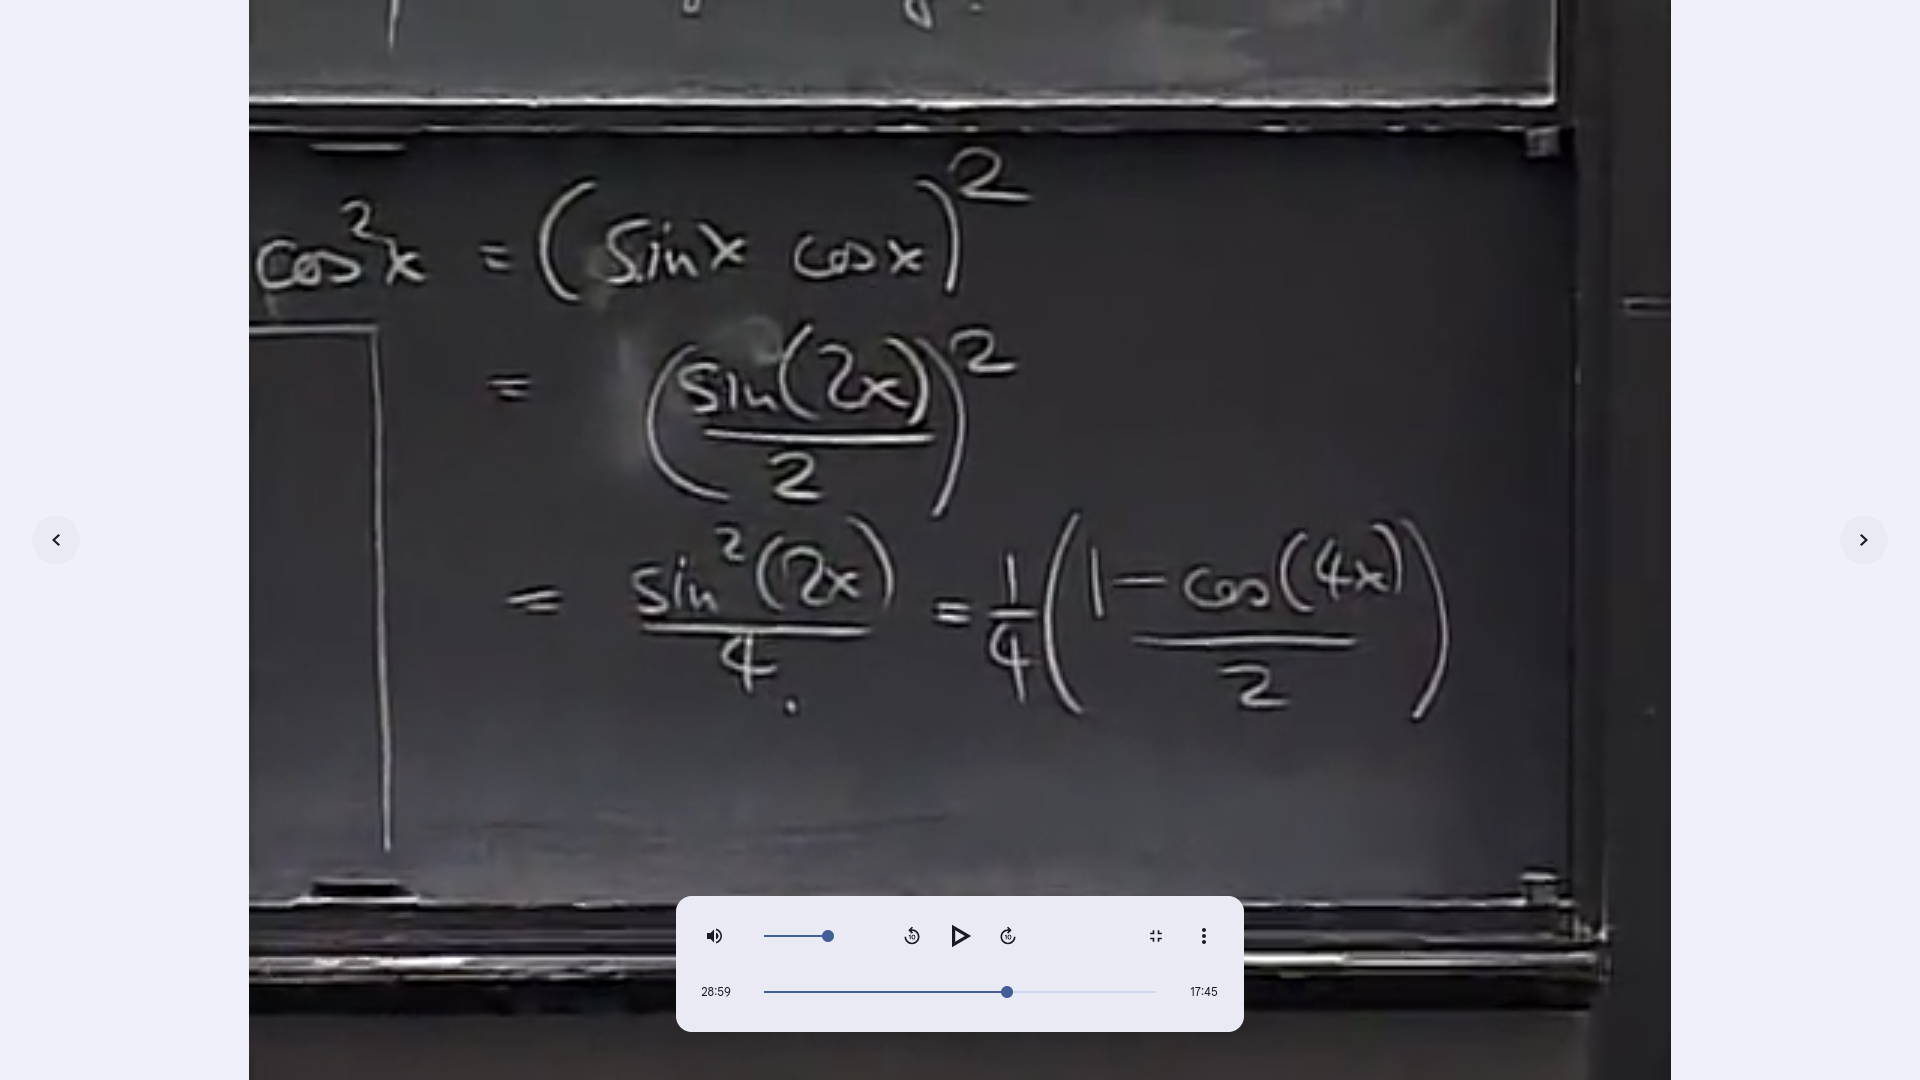 cos²x = (sinx cosx)²
= (sin(2x)/2)²
= sin²(2x)/4. = 1/4 (1 - cos(4x)/2)
10 10
28:59 17:45